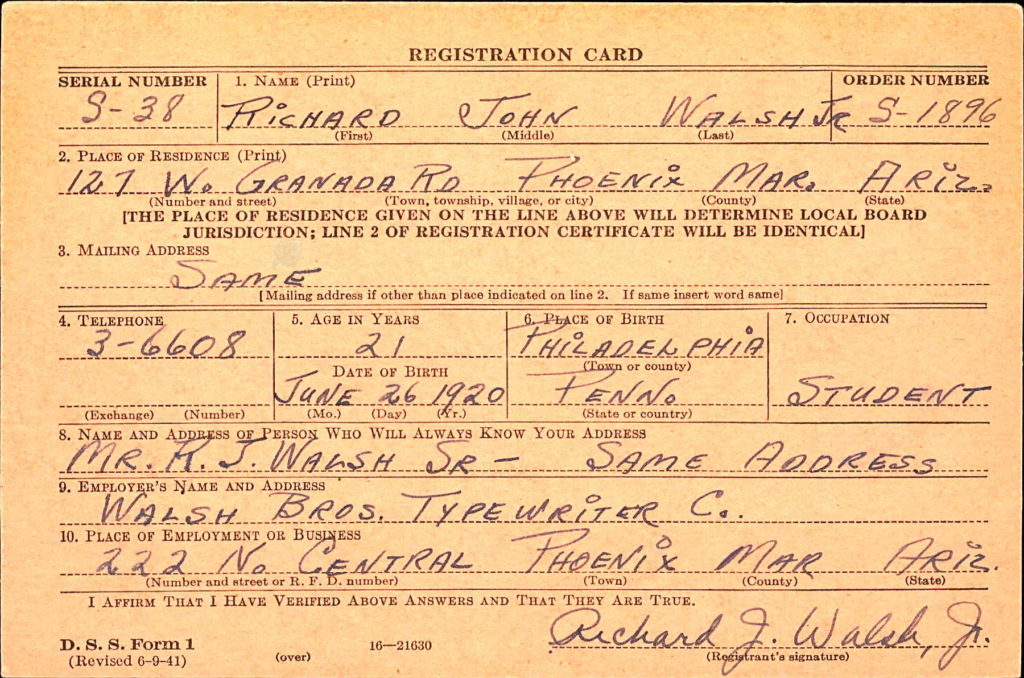 REGISTRATION CARD
SERIAL NUMBER 1. NAME (Print) ORDER NUMBER
S-38 RICHARD JOHN WALSH JR S-1896
(First) (Middle) (Last)
2. PLACE OF RESIDENCE (Print)
127 W. GRANADA RD PHOENIX MAR. ARIZ.
(Number and street) (Town, township, village, or city) (County) (State)
[THE PLACE OF RESIDENCE GIVEN ON THE LINE ABOVE WILL DETERMINE LOCAL BOARD
JURISDICTION; LINE 2 OF REGISTRATION CERTIFICATE WILL BE IDENTICAL]
3. MAILING ADDRESS
SAME
[Mailing address if other than place indicated on line 2. If same insert word same]
4. TELEPHONE 5. AGE IN YEARS 6. PLACE OF BIRTH 7. OCCUPATION
3-6608 21 PHILADELPHIA
(Town or county)
DATE OF BIRTH
JUNE 26 1920 PENN. STUDENT
(Exchange) (Number) (Mo.) (Day) (Yr.) (State or country)
8. NAME AND ADDRESS OF PERSON WHO WILL ALWAYS KNOW YOUR ADDRESS
MR. R. J. WALSH SR - SAME ADDRESS
9. EMPLOYER'S NAME AND ADDRESS
WALSH BROS. TYPEWRITER C..
10. PLACE OF EMPLOYMENT OR BUSINESS
222 No CENTRAL PHOENIX MAR ARIZ.
(Number and street or R. F. D. number) (Town) (County) (State)
I AFFIRM THAT I HAVE VERIFIED ABOVE ANSWERS AND THAT THEY ARE TRUE.
Richard J. Walsh, Jr.
D. S. S. Form 1 16—21630
(Revised 6-9-41) (over) (Registrant's signature)